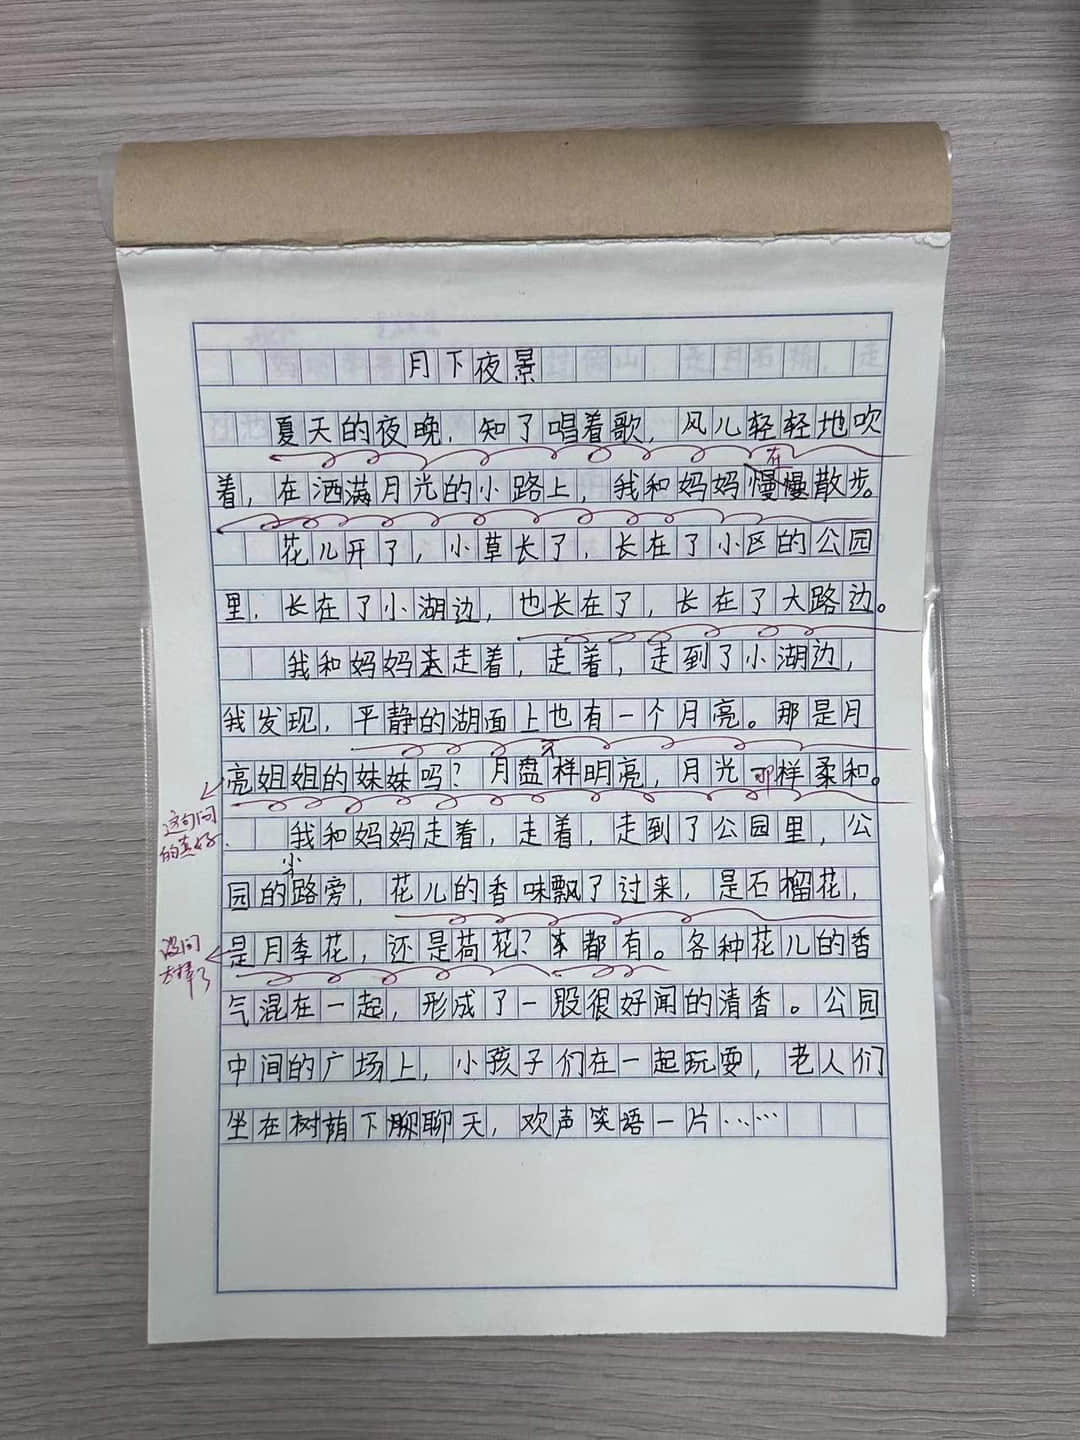 月下夜景
夏天的夜晚，知了唱着歌，风儿轻轻地吹
在
着，在洒满月光的小路上，我和妈妈慢慢散步。
花儿开了，小草长了，长在了小区的公园
里，长在了小湖边，也长在了，长在了大路边。
我和妈妈走走着，走着，走到了小湖边，
我发现，平静的湖面上也有一个月亮。那是月
亮姐姐的妹妹吗？月盘样明亮，月光那样柔和。
这句问
的真好
我和妈妈走着，走着，走到了公园里，公
小
园的路旁，花儿的香味飘了过来，是石榴花，
是月季花，还是荷花？都有。各种花儿的香
设问
太棒了
气混在一起，形成了一股很好闻的清香。公园
中间的广场上，小孩子们在一起玩耍，老人们
坐在树荫下聊聊天，欢声笑语一片……